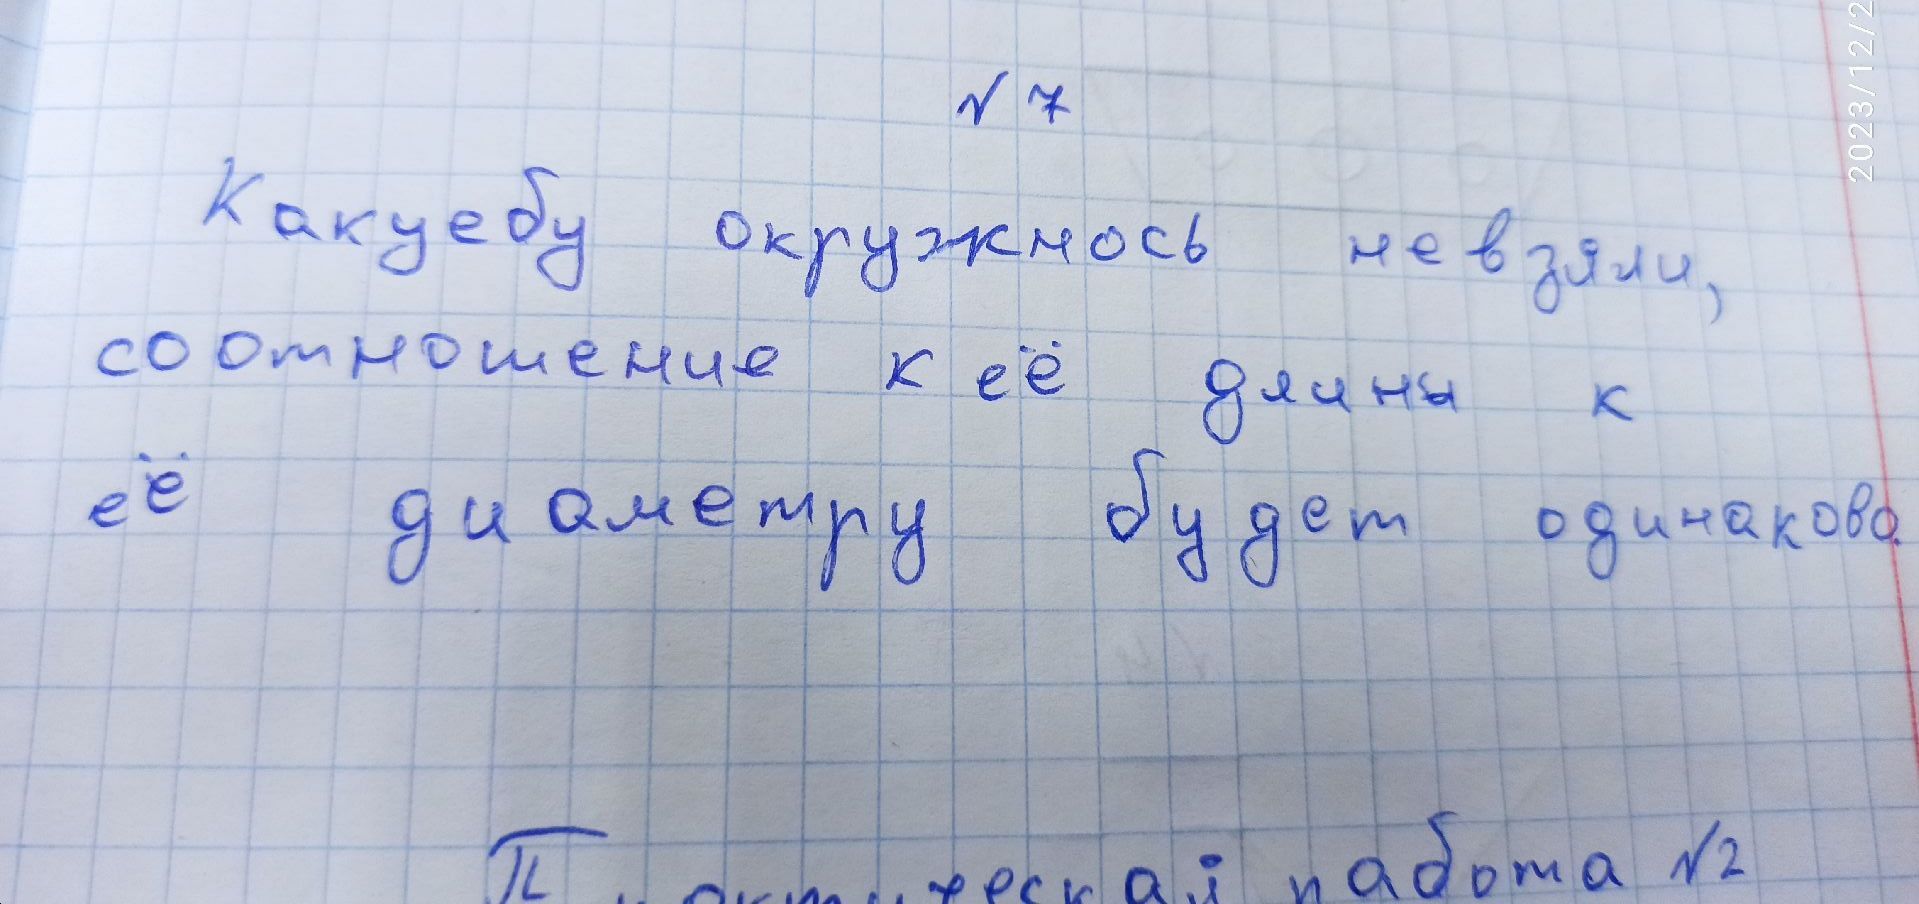 № 7
Какуебу окружнось невзяли,
соотношение к её длины к
её диаметру будет одинаково.
Практическая работа №2
2023/12/2